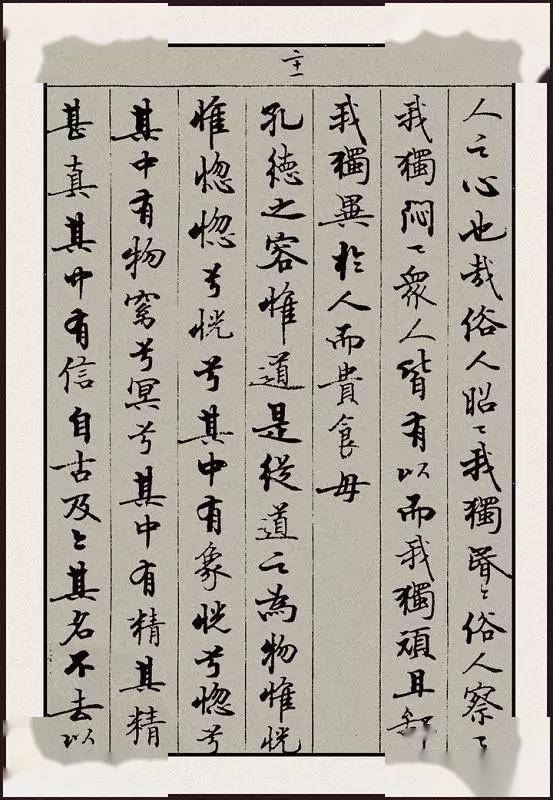 二十一
人之心也哉俗人昭〻我獨昏〻俗人察〻
我獨悶〻衆人皆有以而我獨頑且鄙
我獨異於人而貴食母
孔德之容惟道是從道之為物惟恍
惟惚惚兮恍兮其中有象恍兮惚兮
其中有物窈兮冥兮其中有精其精
甚真其中有信自古及今其名不去以